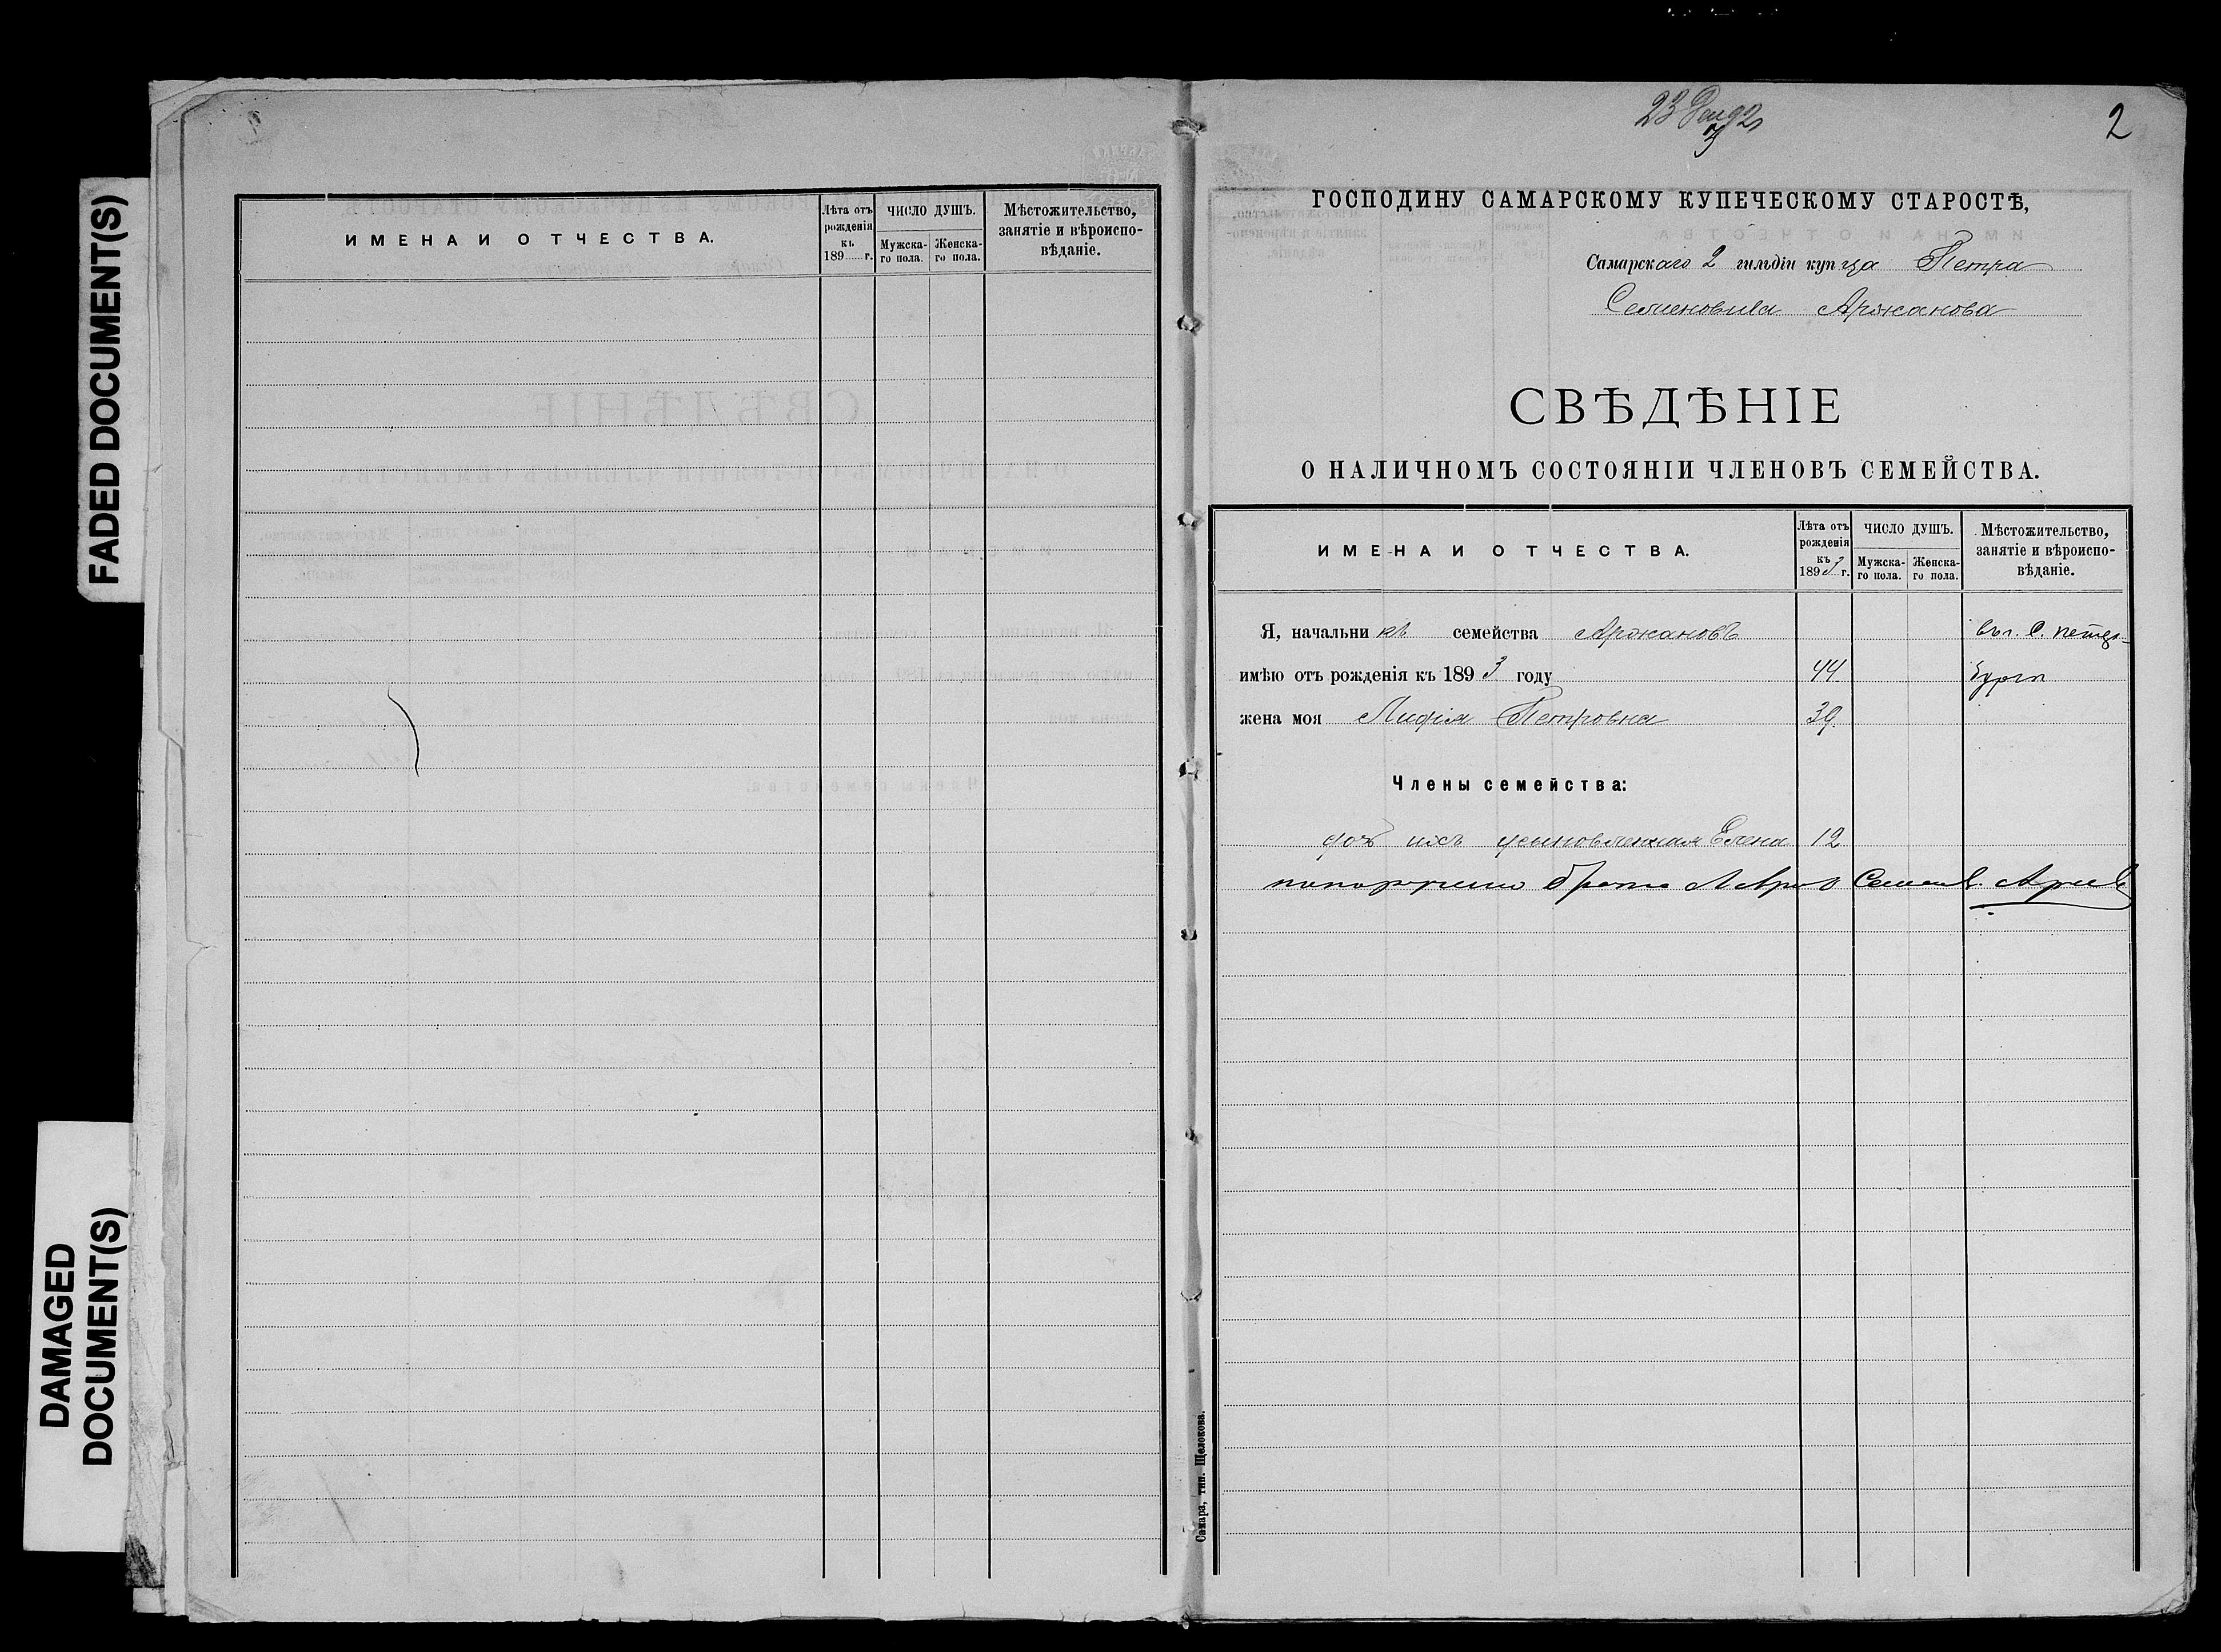 FADED DOCUMENT(S)
DAMAGED
DOCUMENT(S)
ИМЕНА И ОТЧЕСТВА.
Лѣта отъ рожденія къ 189 г.
ЧИСЛО ДУШЪ.
Мужска-го пола.
Женска-го пола.
Мѣстожительство, занятіе и вѣроиспо-вѣданіе.
23 Дек 92
2
ГОСПОДИНУ САМАРСКОМУ КУПЕЧЕСКОМУ СТАРОСТѢ,
Самарскаго 2 гильдіи купца Петра
Семеновича Аржанова
СВѢДѢНІЕ
О НАЛИЧНОМЪ СОСТОЯНІИ ЧЛЕНОВЪ СЕМЕЙСТВА.
ИМЕНА И ОТЧЕСТВА.
Лѣта отъ рожденія къ 1893 г.
ЧИСЛО ДУШЪ.
Мужска-го пола.
Женска-го пола.
Мѣстожительство, занятіе и вѣроиспо-вѣданіе.
Я, начальникъ семейства Аржановъ въ г. С. Петер-
имѣю отъ рожденія къ 1893 году 44. бургѣ
жена моя Лидія Петровна 39.
Члены семейства:
доч ихъ усыновленная Елена 12
брата
Самара, тип. Щелокова.